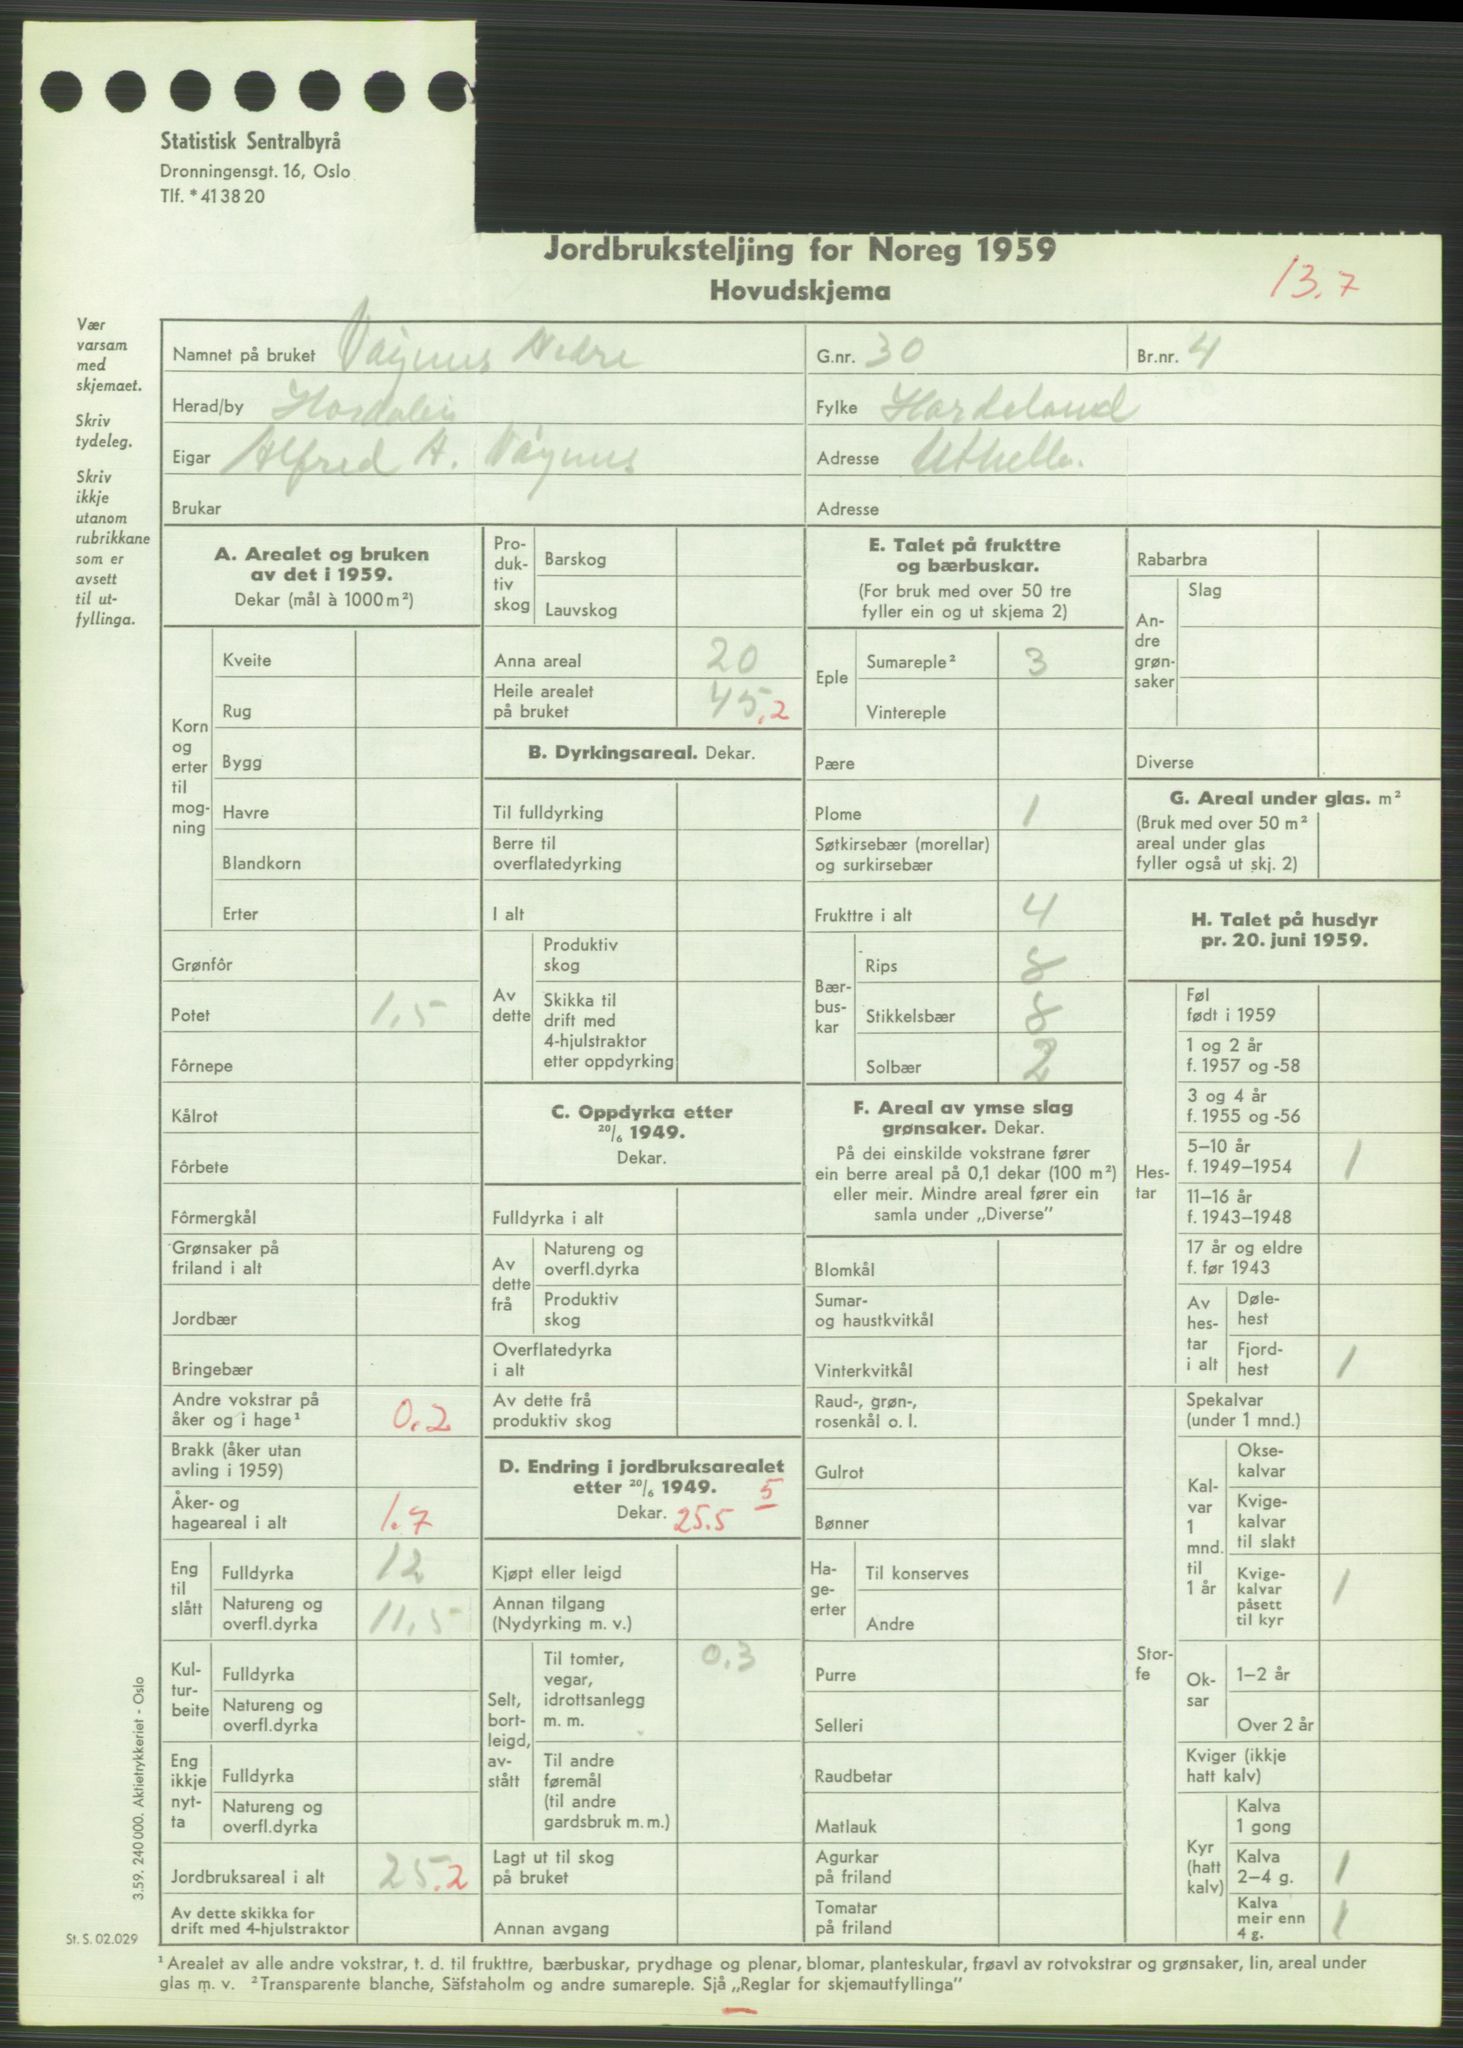 Statistisk Sentralbyrå
Dronningensgt. 16, Oslo
Tlf. *41 38 20
Jordbruksteljing for Noreg 1959
Hovudskjema
13.7
Vær
varsam
med
skjemaet.
Skriv
tydeleg.
Skriv
ikkje
utanom
rubrikkane
som er
avsett
til ut-
fyllinga.
Namnet på bruket Vågnus Nedre
G.nr. 30
Br.nr. 4
Herad/by
Fylke Hordaland
Eigar Alfred A. Vågnus
Adresse
Brukar
Adresse
A. Arealet og bruken
av det i 1959.
Dekar (mål à 1000 m²)
Korn
og
erter
til
mog-
ning
Kveite
Rug
Bygg
Havre
Blandkorn
Erter
Grønfôr
Potet 1,5
Fôrnepe
Kålrot
Fôrbete
Fôrmergkål
Grønsaker på
friland i alt
Jordbær
Bringebær
Andre vokstrar på
åker og i hage¹ 0.2
Brakk (åker utan
avling i 1959)
Åker- og
hageareal i alt 1.7
Eng
til
slått
Fulldyrka 12
Natureng og
overfl.dyrka 11,5
Kul-
tur-
beite
Fulldyrka
Natureng og
overfl.dyrka
Eng
ikkje
nyt-
ta
Fulldyrka
Natureng og
overfl.dyrka
Jordbruksareal i alt 25.2
Av dette skikka for
drift med 4-hjulstraktor
Pro-
duk-
tiv
skog
Barskog
Lauvskog
Anna areal 20
Heile arealet
på bruket 45.2
B. Dyrkingsareal. Dekar.
Til fulldyrking
Berre til
overflatedyrking
I alt
Av
dette
Produktiv
skog
Skikka til
drift med
4-hjulstraktor
etter oppdyrking
C. Oppdyrka etter
20/6 1949.
Dekar.
Fulldyrka i alt
Av
dette
frå
Natureng og
overfl.dyrka
Produktiv
skog
Overflatedyrka
i alt
Av dette frå
produktiv skog
D. Endring i jordbruksarealet
etter 20/6 1949. 5
Dekar. 25.5
Kjøpt eller leigd
Annan tilgang
(Nydyrking m. v.)
Selt,
bort-
leigd,
av-
stått
Til tomter,
vegar,
idrottsanlegg
m. m. 0.3
Til andre
føremål
(til andre
gardsbruk m. m.)
Lagt ut til skog
på bruket
Annan avgang
E. Talet på frukttre
og bærbuskar.
(For bruk med over 50 tre
fyller ein og ut skjema 2)
Eple
Sumareple² 3
Vintereple
Pære
Plome 1
Søtkirsebær (morellar)
og surkirsebær
Frukttre i alt 4
Bær-
bus-
kar
Rips 8
Stikkelsbær 8
Solbær 2
F. Areal av ymse slag
grønsaker. Dekar.
På dei einskilde vokstrane fører
ein berre areal på 0,1 dekar (100 m²)
eller meir. Mindre areal fører ein
samla under „Diverse”
Blomkål
Sumar-
og haustkvitkål
Vinterkvitkål
Raud-, grøn-,
rosenkål o. l.
Gulrot
Bønner
Ha-
ge-
erter
Til konserves
Andre
Purre
Selleri
Raudbetar
Matlauk
Agurkar
på friland
Tomatar
på friland
Rabarbra
An-
dre
grøn-
saker
Slag
Diverse
G. Areal under glas. m²
(Bruk med over 50 m²
areal under glas
fyller også ut skj. 2)
H. Talet på husdyr
pr. 20. juni 1959.
Hes-
tar
Føl
født i 1959
1 og 2 år
f. 1957 og -58
3 og 4 år
f. 1955 og -56
5–10 år
f. 1949–1954 1
11–16 år
f. 1943–1948
17 år og eldre
f. før 1943
Av
hes-
tar
i alt
Døle-
hest
Fjord-
hest 1
Stor-
fe
Spekalvar
(under 1 mnd.)
Kal-
var
1
mnd.
til
1 år
Okse-
kalvar
Kvige-
kalvar
til slakt
Kvige-
kalvar
påsett
til kyr 1
Ok-
sar
1–2 år
Over 2 år
Kviger (ikkje
hatt kalv)
Kyr
(hatt
kalv)
Kalva
1 gong
Kalva
2–4 g. 1
Kalva
meir enn
4 g. 1
3.59. 240 000. Aktietrykkeriet - Oslo
St. S. 02.029
¹ Arealet av alle andre vokstrar, t. d. til frukttre, bærbuskar, prydhage og plenar, blomar, planteskular, frøavl av rotvokstrar og grønsaker, lin, areal under
glas m. v. ² Transparente blanche, Säfstaholm og andre sumareple. Sjå „Reglar for skjemautfyllinga”